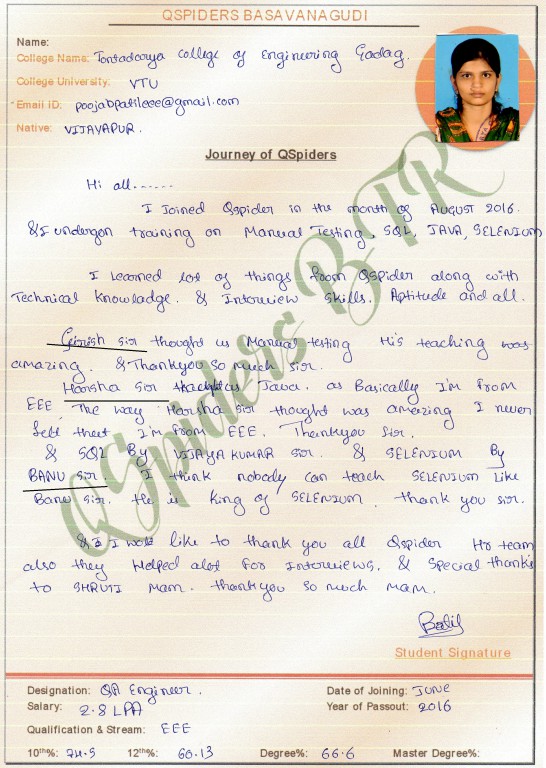 QSPIDERS BASAVANAGUDI
Name:
College Name: Tontadarya college of Engineering Gadag.
College University: VTU
Email ID: poojabpatileee@gmail.com
Native: VIJAYAPUR.
Journey of QSpiders
Hi all......
I Joined Qspider in the month of AUGUST 2016.
& I undergon training on Manual Testing, SQL, JAVA, SELENIUM
I Learned lot of things from Qspider along with
Technical knowladge. & Interview skills. Aptitude and all.
Girish sir thought us Manual testing His teaching was
amazing. & Thankyou so much sir.
Harsha sir us Java. as Basically I'm from
EEE, The way Harsha sir thought was amazing I never
felt that I'm from EEE. Thankyou Sir.
& SQL By VIJAYA KUMAR sir. & SELENIUM By
BANU sir. I think nobody can teach SELENIUM Like
Banu sir. He is King of SELENIUM. thank you sir.
& I would like to thank you all Qspider Hr team
also they Helped alot for Interviews. & Special thanks
to SHRUTI Mam. thankyou so much mam.
QSpiders BTR
Student Signature
Designation: QA Engineer.
Date of Joining: JUNE
Salary: 2.8 LPA
Year of Passout: 2016
Qualification & Stream: EEE
10th%: 74.5 12th%: 60.13 Degree%: 66.6 Master Degree%: